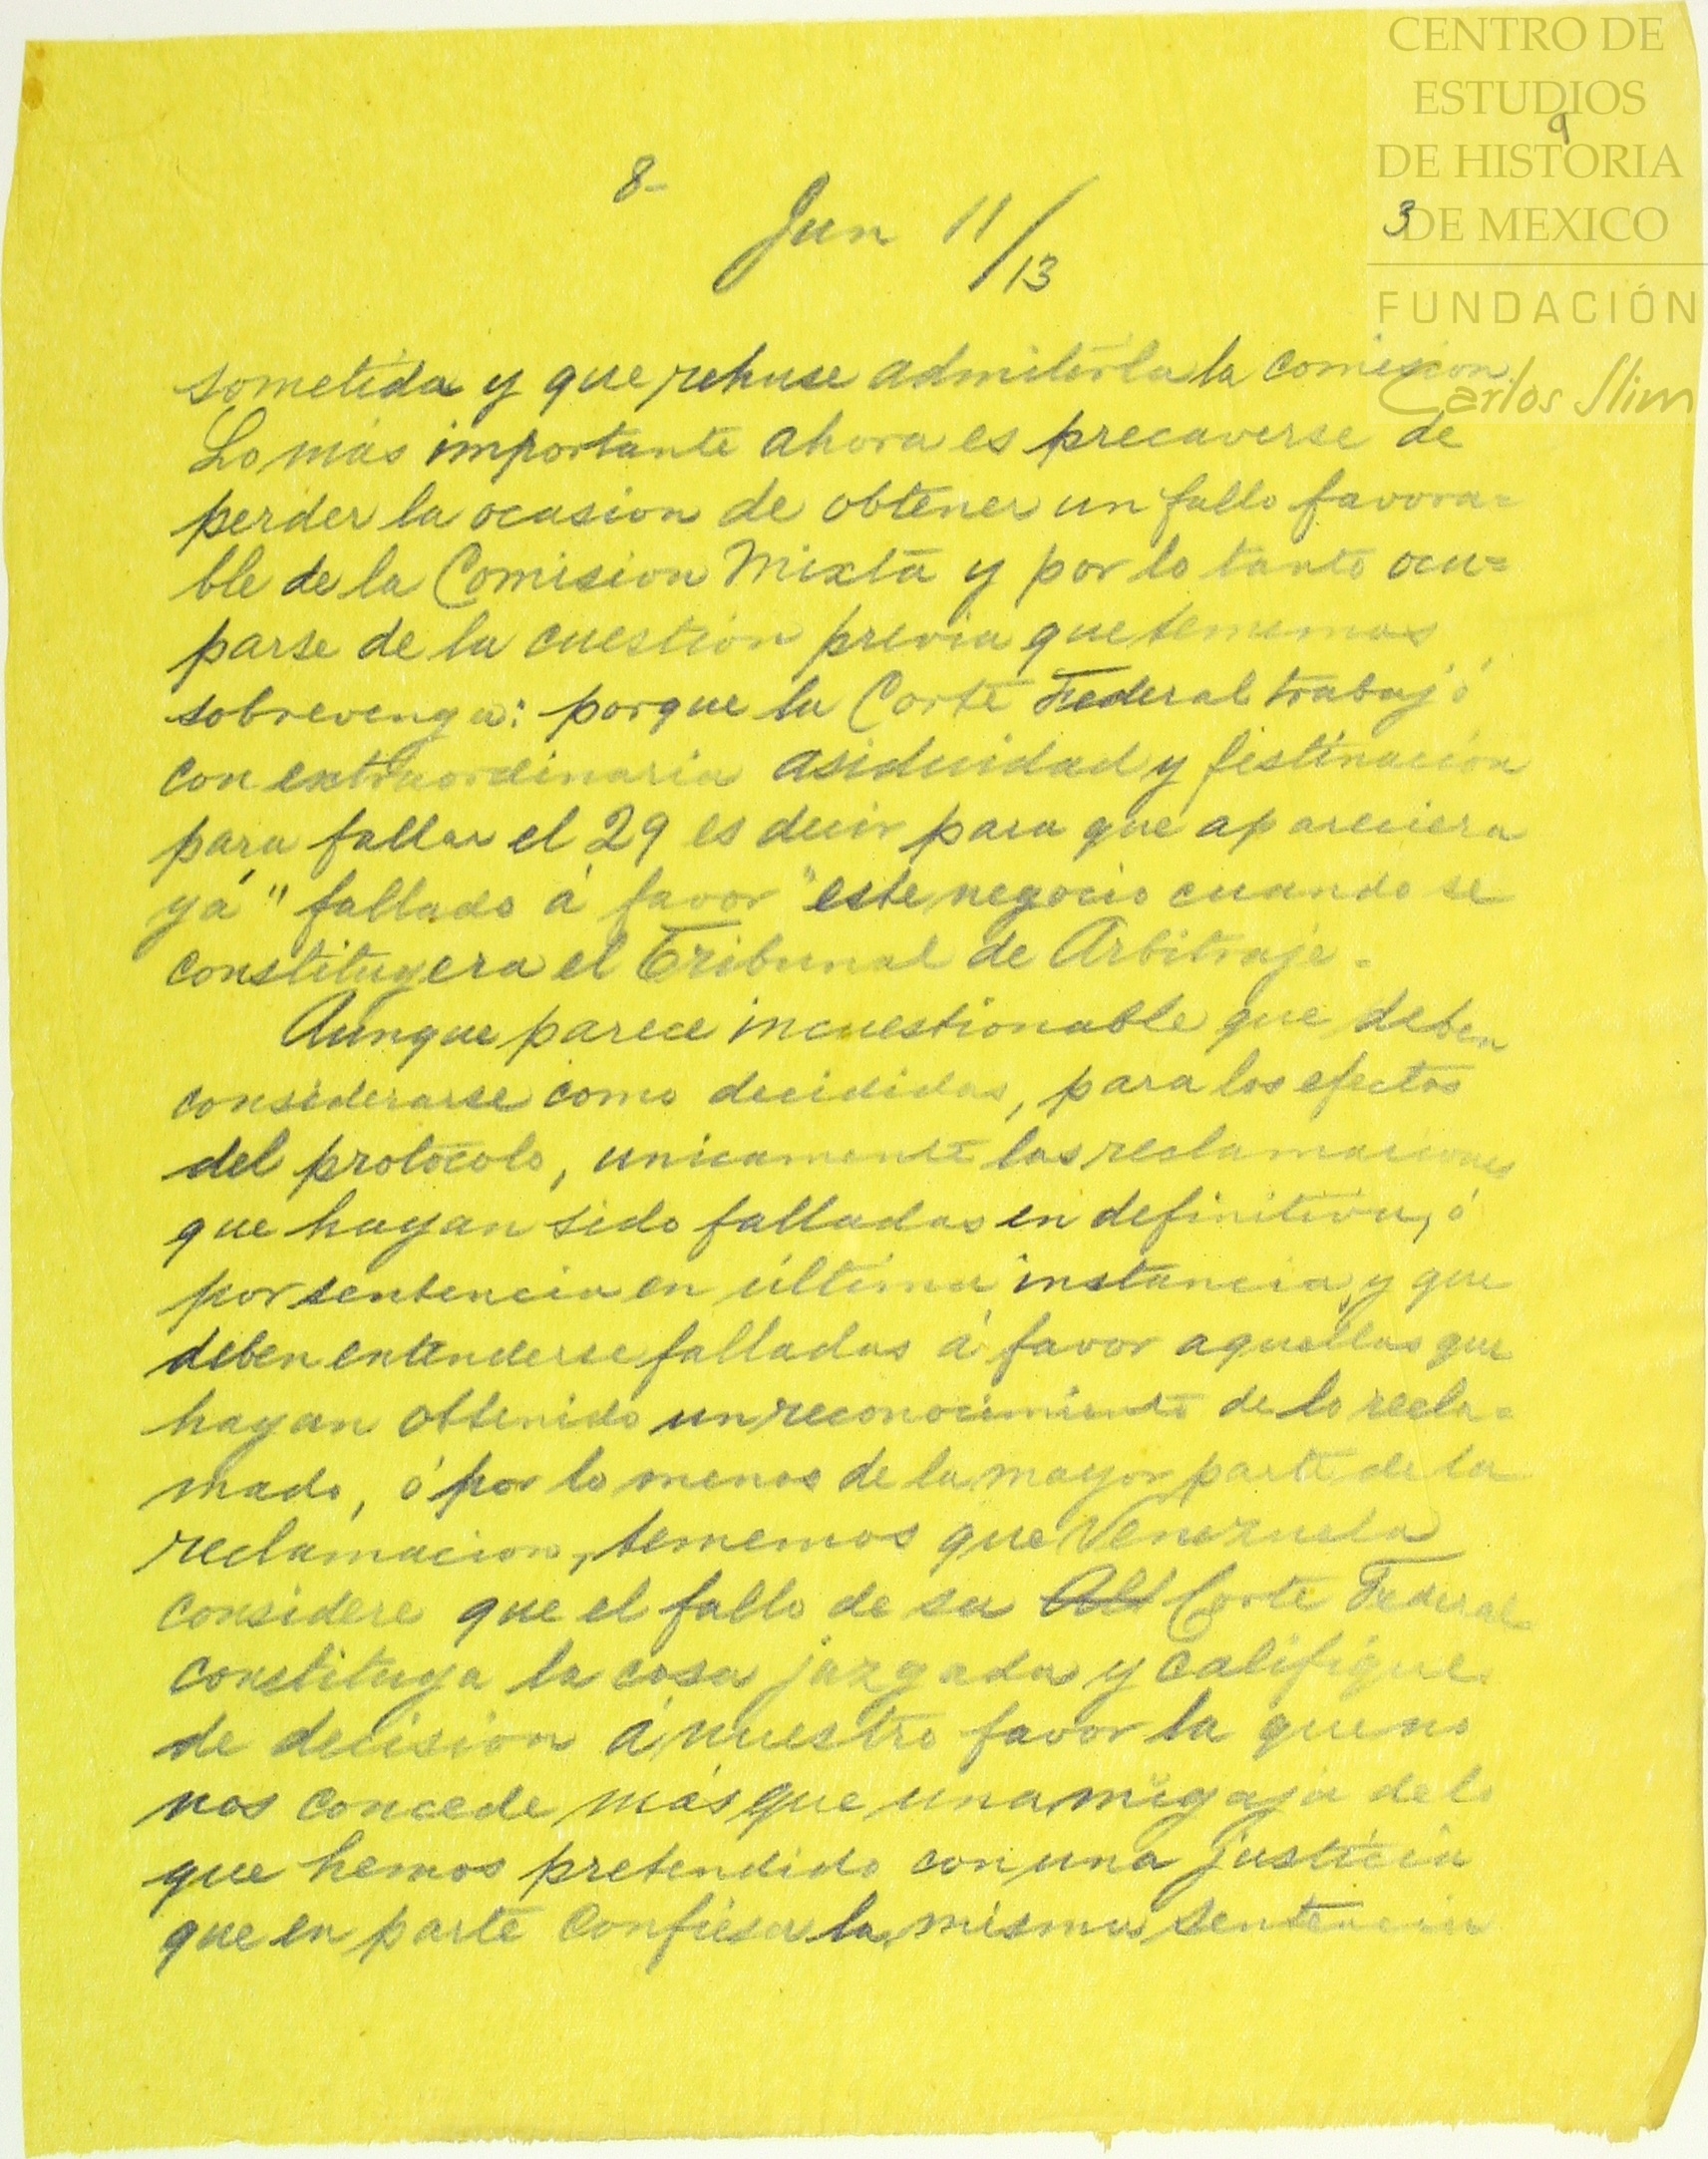 CENTRO DE
ESTUDIOS
9
DE HISTORIA
3
DE MEXICO
FUNDACIÓN
Carlos Slim
8-
Jun 11/13
sometida y que rehuse admitirla la comision.
Lo más importante ahora es precaverse de
perder la ocasion de obtener un fallo favora=
ble de la Comision Mixta y por lo tanto ocu=
parse de la cuestion previa que tememos
sobrevenga: porque la Corte Federal trabajó
con extraordinaria asiduidad y festinacion
para fallar el 29 es decir para que apareciera
yá "fallado á favor" este negocio cuando se
constituyera el Tribunal de Arbitraje.
Aunque parece incuestionable que deben
considerarse como decididas, para los efectos
del protocolo, unicamente las reclamaciones
que hayan sido falladas en definitiva, ó
por sentencia en última instancia, y que
deben entenderse falladas á favor aquellas que
hayan obtenido un reconocimiento de lo recla=
mado, ó por lo menos de la mayor parte de la
reclamacion, tememos que Venezuela
considere que el fallo de su Corte Federal
constituya la cosa juzgada y califique
de decision á nuestro favor la que no
nos concede más que una migaja de lo
que hemos pretendido con una justicia
que en parte confiesa la misma sentencia